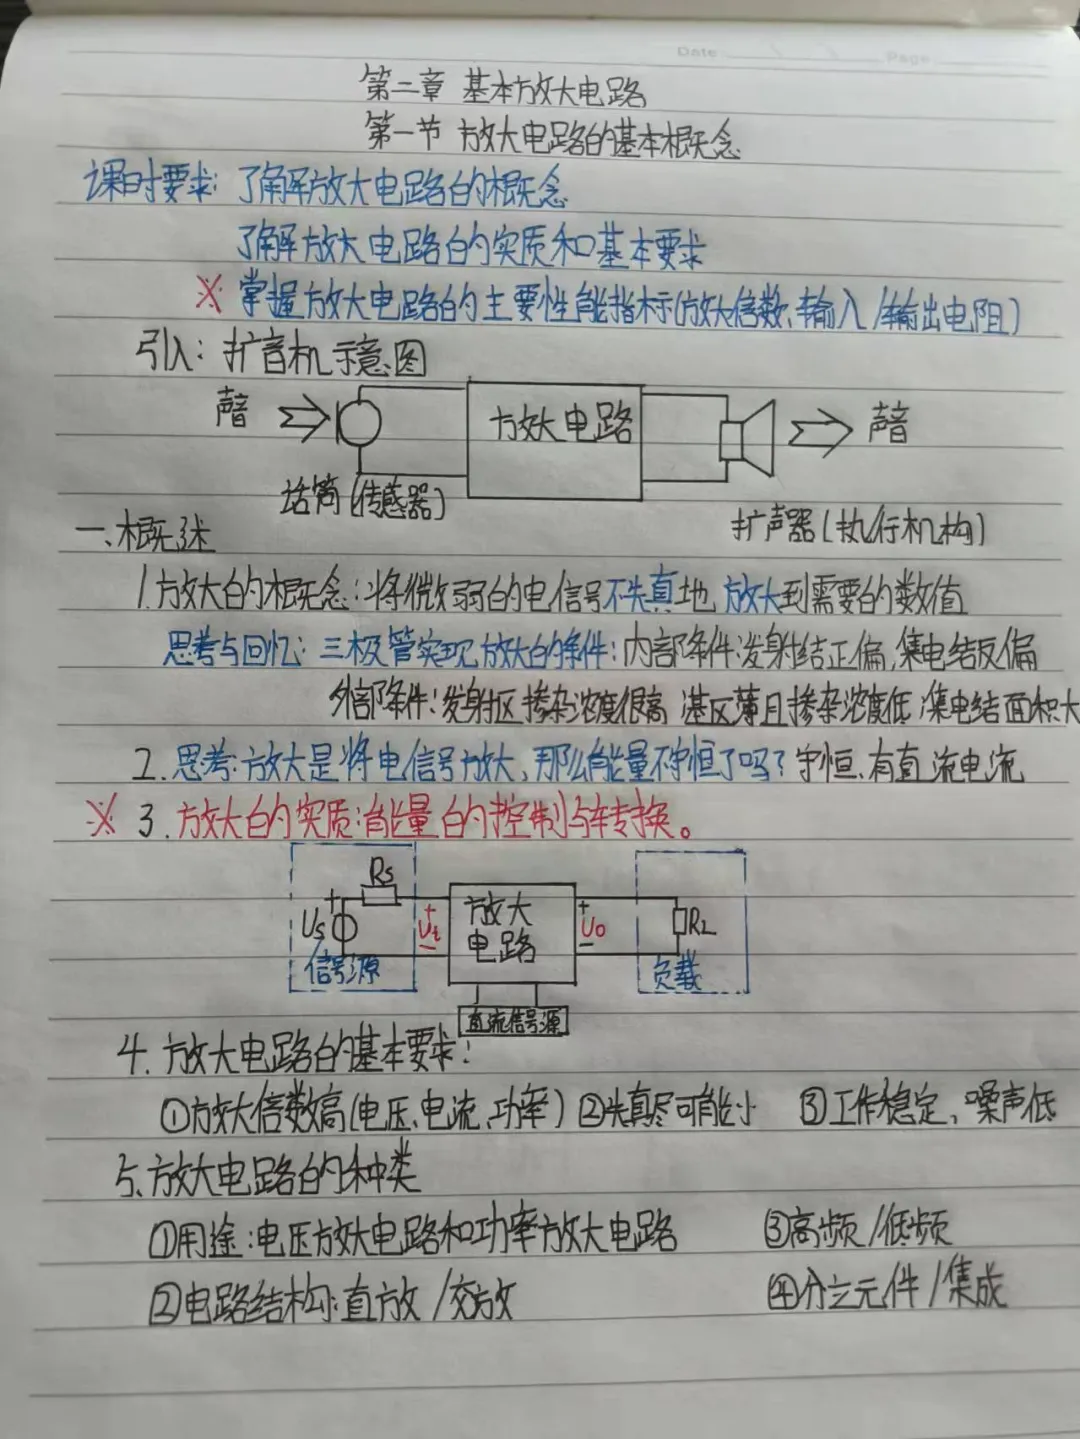 Date / / Page
第二章 基本放大电路
第一节 放大电路的基本概念
课时要求: 了解放大电路的概念
了解放大电路的实质和基本要求
※ 掌握放大电路的主要性能指标(放大倍数、输入/输出电阻)
引入: 扩音机示意图
声音 放大电路 声音
话筒(传感器)
扩声器(执行机构)
一、概述
1.放大的概念:将微弱的电信号不失真地放大到需要的数值
思考与回忆: 三极管实现放大的条件: 内部条件:发射结正偏,集电结反偏
外部条件:发射区掺杂浓度很高 基区薄且掺杂浓度低,集电结面积大
2.思考:放大是将电信号放大,那么能量不守恒了吗? 守恒、有直流电流
※ 3.放大的实质:能量的控制与转换。
Rs
+ Us + Ui − 放大电路 + Uo − RL
信号源 负载
直流信号源
4.放大电路的基本要求:
①放大倍数高(电压、电流、功率) ②失真尽可能小 ③工作稳定、噪声低
5、放大电路的种类
①用途:电压放大电路和功率放大电路 ③高频/低频
②电路结构:直放/交放 ④分立元件/集成